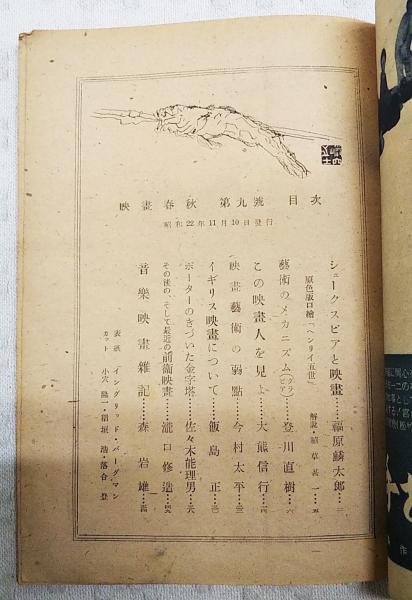 映畫春秋 第九號 目次
昭和22年11月10日發行
シェークスピアと映畫……福原麟太郎…三
原色版口繪「ヘンリイ五世」 解説・植草甚一…五
藝術のメカニズム(グラビア)……登川直樹…六
この映畫人を見よ……大熊信行…
映畫藝術の弱點……今村太平…
イギリス映畫について……飯島正…
ポーターのきづいた金字塔……佐々木能理男…
その後の、そして最近の前衞映畫……瀧口修造…
音樂映畫雜記……森岩雄…
表紙 イングリッド・バーグマン
カット 小穴隆一・稻垣浩・落合登
一